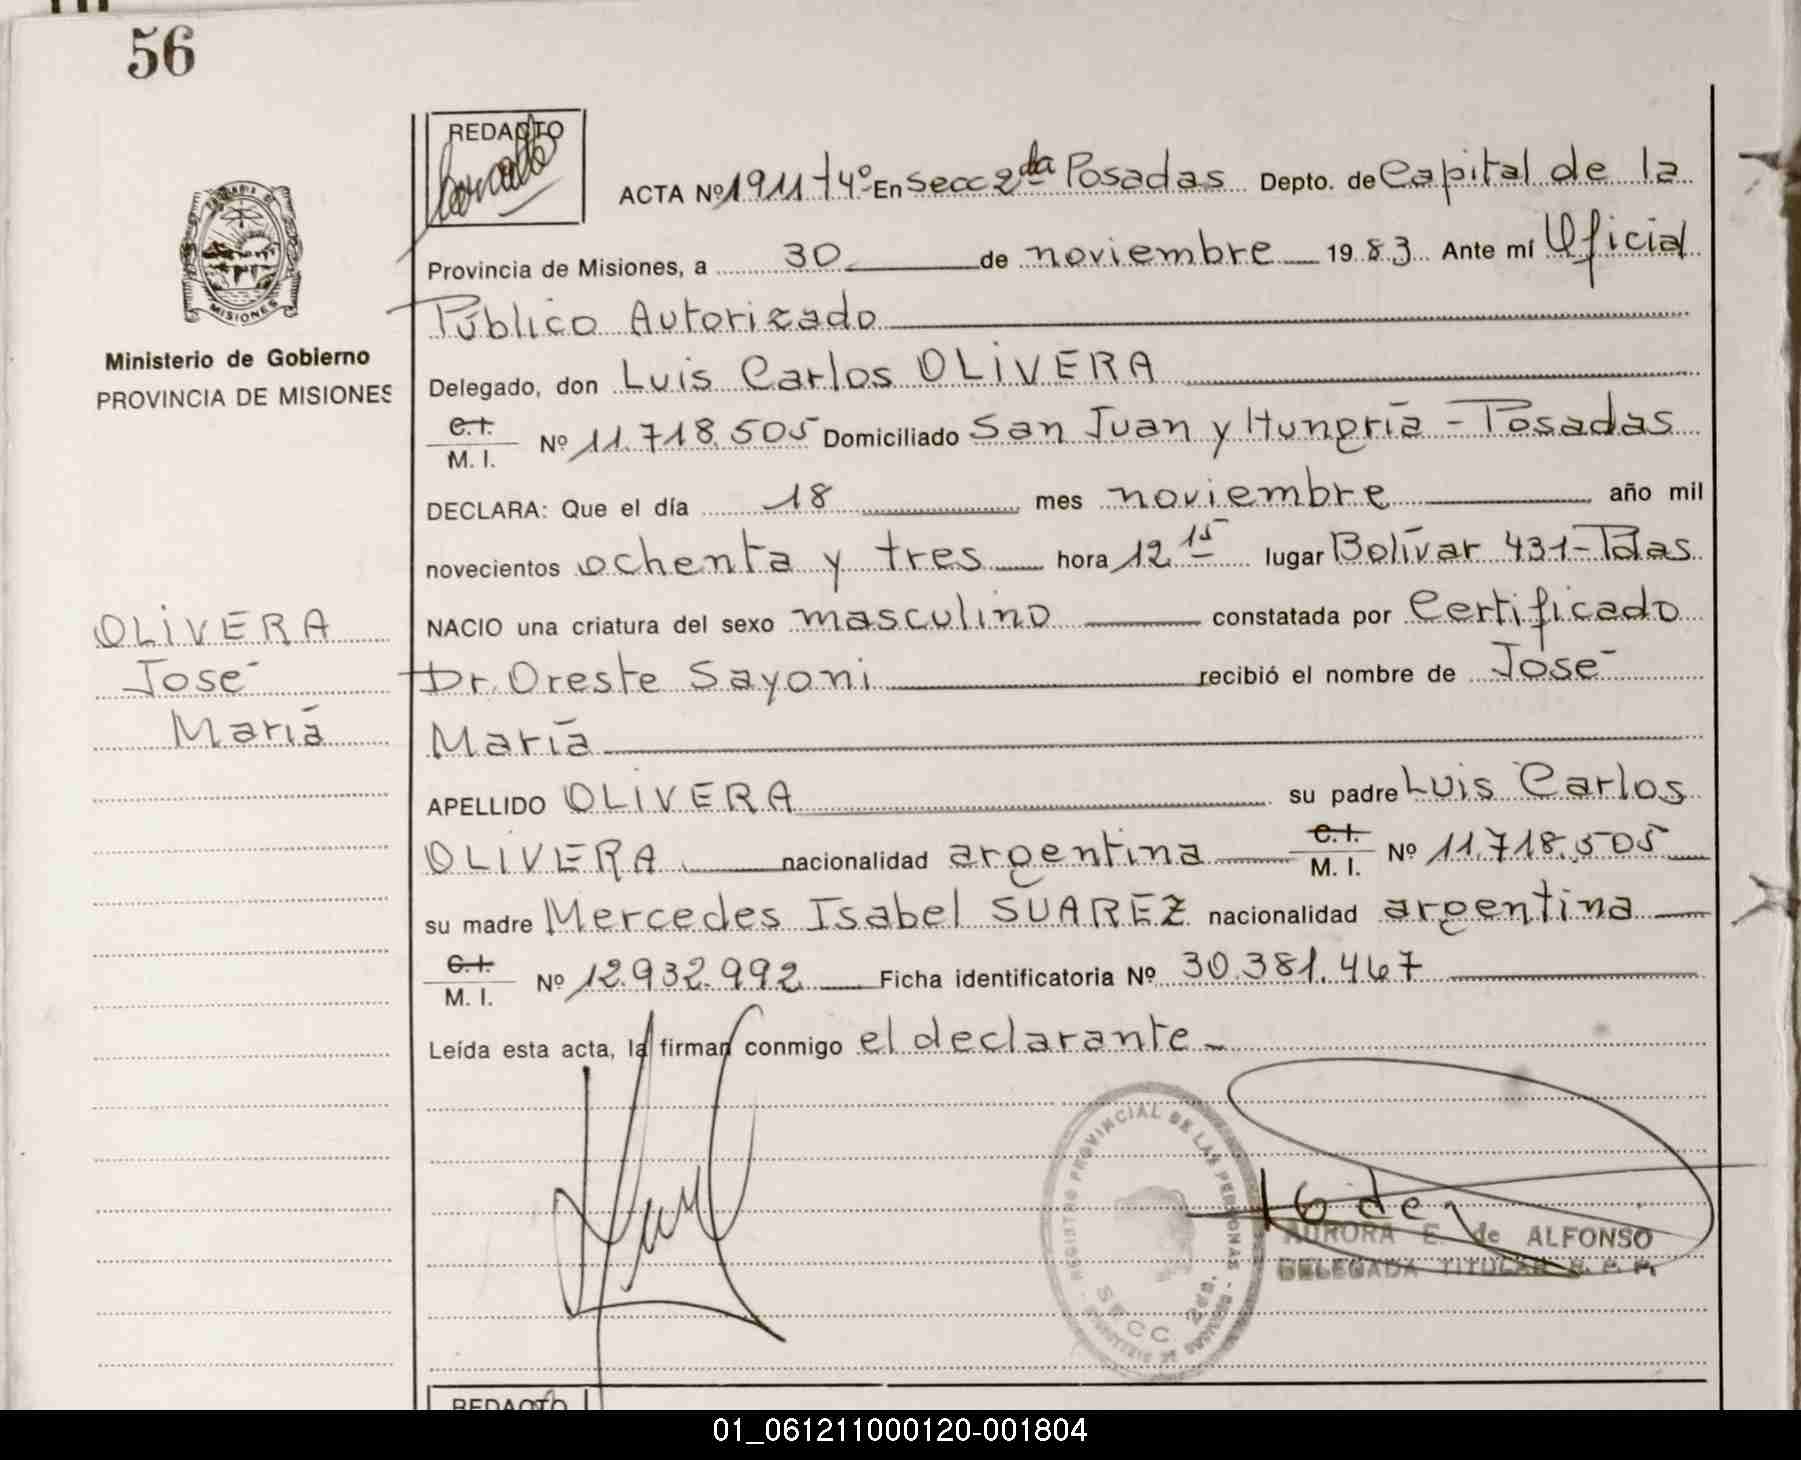 56
REDACTO
ACTA Nº 1911 T4º En Secc 2da Posadas Depto. de Capital de la
Provincia de Misiones, a 30 de noviembre 1983. Ante mí Oficial
Público Autorizado
Delegado, don Luis Carlos OLIVERA
C.I. / M. I. Nº 11.718.505 Domiciliado San Juan y Hungría - Posadas
DECLARA: Que el día 18 mes noviembre año mil
novecientos ochenta y tres hora 12 15 lugar Bolívar 431 - Pdas
NACIO una criatura del sexo masculino constatada por Certificado
Dr. Oreste Sayoni recibió el nombre de José
María
APELLIDO OLIVERA su padre Luis Carlos
OLIVERA nacionalidad argentina C.I. / M. I. Nº 11.718.505
su madre Mercedes Isabel SUAREZ nacionalidad argentina
C.I. / M. I. Nº 12.932.992 Ficha identificatoria Nº 30.381.467
Leída esta acta, la firman conmigo el declarante
MISIONES
Ministerio de Gobierno
PROVINCIA DE MISIONES
OLIVERA
José
María
REGISTRO PROVINCIAL DE LAS PERSONAS
SECC 2da.
AURORA E. de ALFONSO
DELEGADA TITULAR R. P. P.
REDACTO
01_061211000120-001804